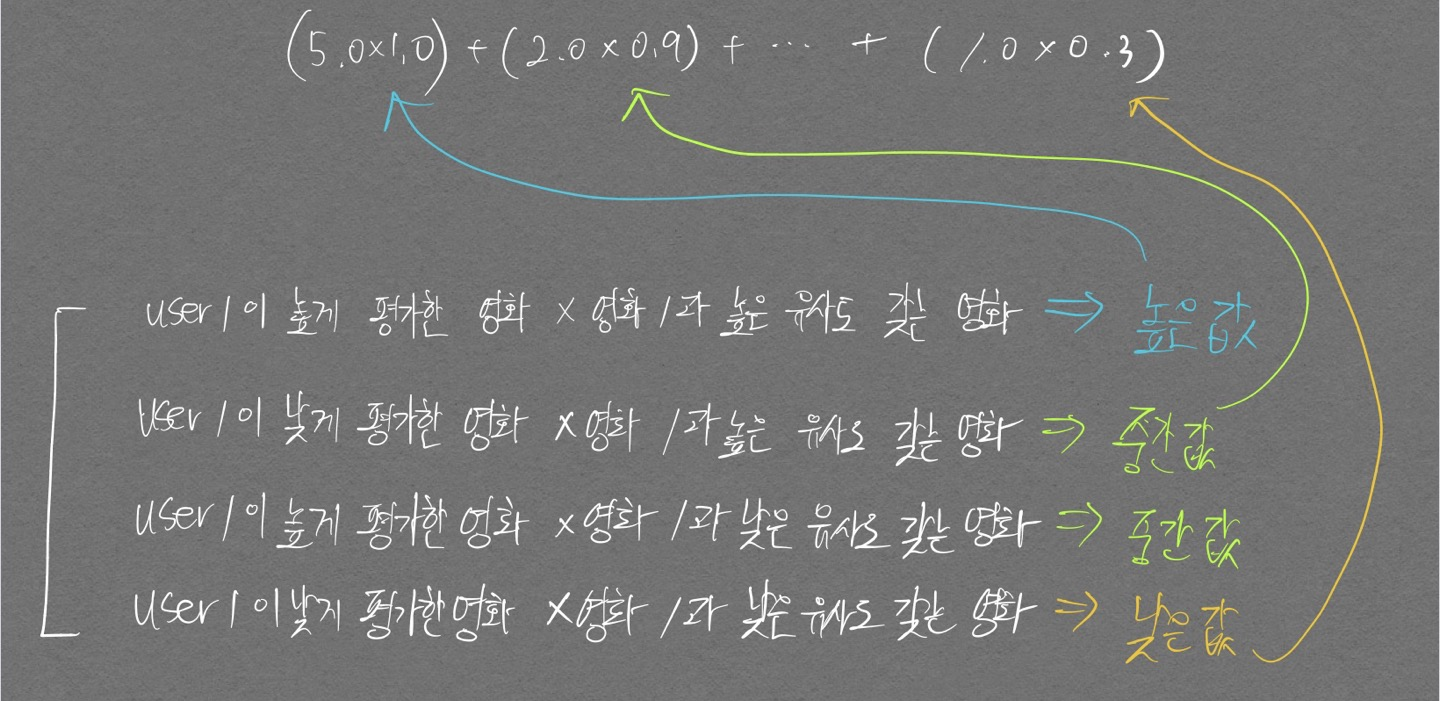 (5.0×1.0) + (2.0 × 0.9) + ... + (1.0 × 0.3)
user1이 높게 평가한 영화 × 영화1과 높은 유사도 갖는 영화 ⇒ 높은값
user1이 낮게 평가한 영화 ×영화1과 높은 유사도 갖는 영화 ⇒ 중간값
user1이 높게 평가한 영화 ×영화1과 낮은 유사도 갖는 영화 ⇒ 중간값
user1이 낮게 평가한 영화 ×영화1과 낮은 유사도 갖는 영화 ⇒ 낮은값